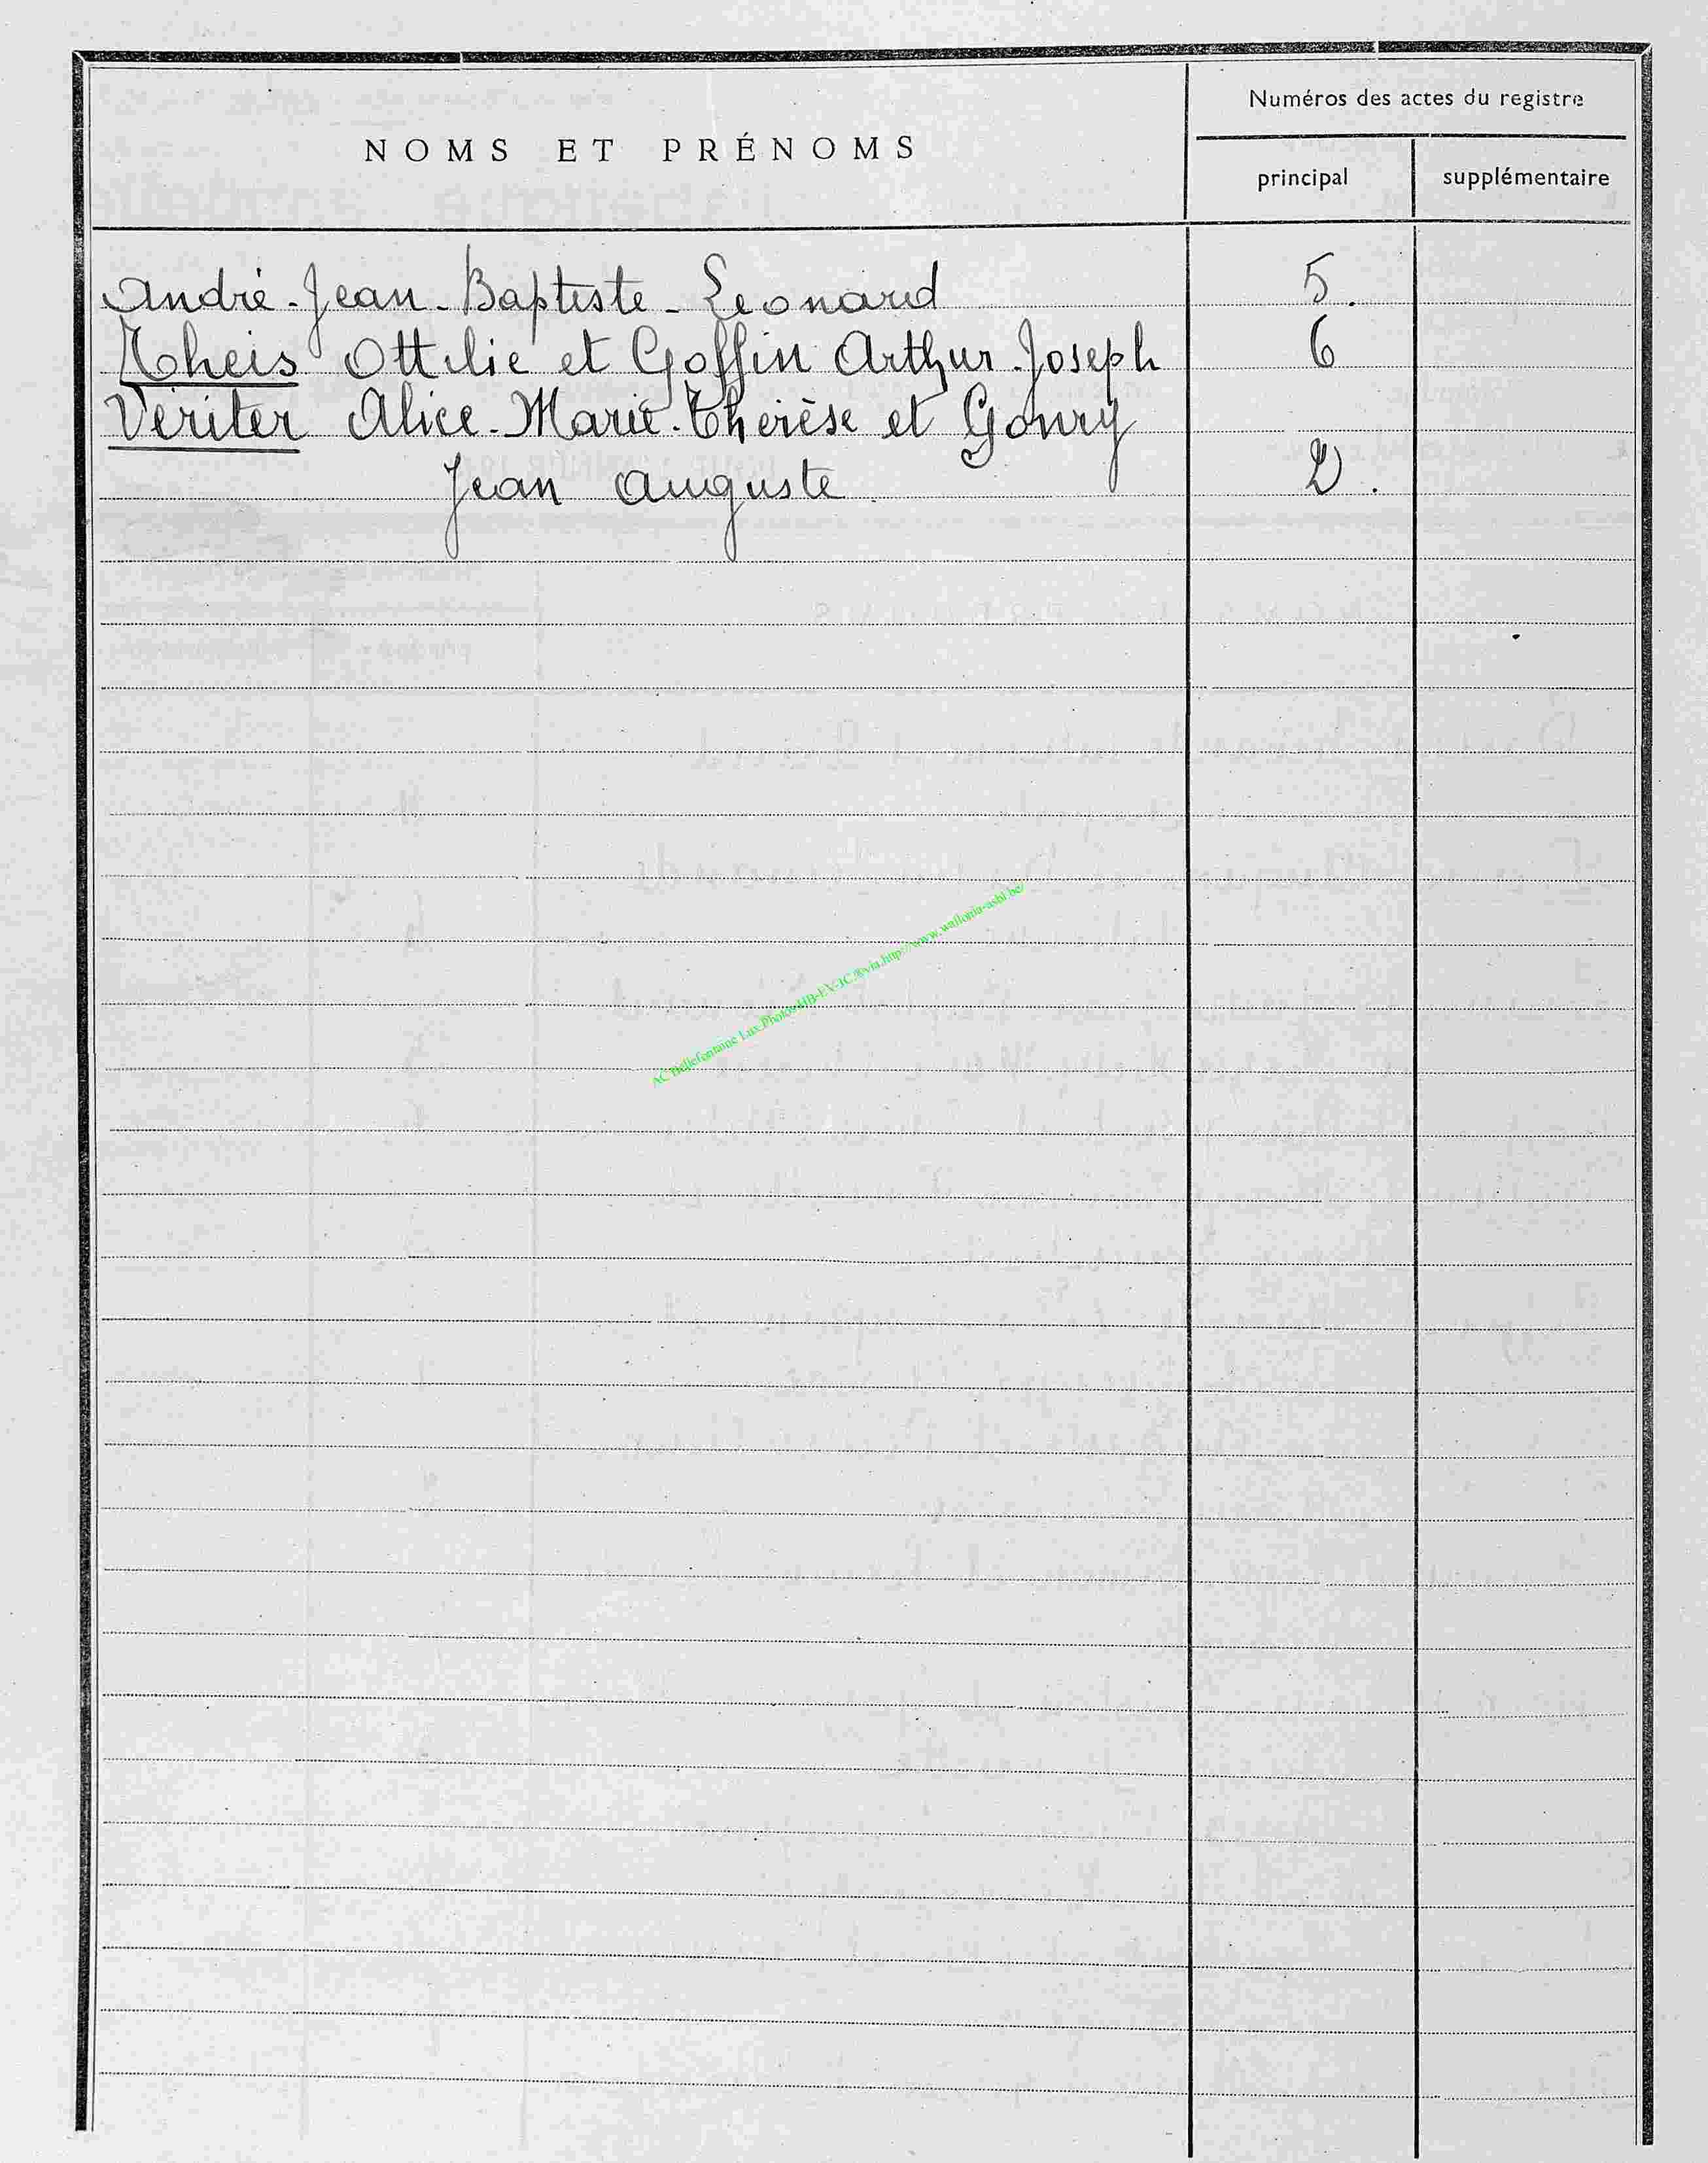 NOMS ET PRÉNOMS
Numéros des actes du registre
principal
supplémentaire
André-Jean-Baptiste-Leonard 5.
Theis Ottilie et Goffin Arthur-Joseph 6
Veriter Alice-Marie-Therèse et Gonry
Jean Auguste 2.
AC Bellefontaine Lux.Photos HB-EV-JC®via http://www.wallonia-asbl.be/